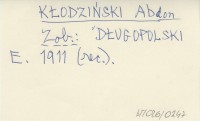 KŁODZIŃSKI Abdon
Zob.: DŁUGOPOLSKI
E. 1911 (rec.).